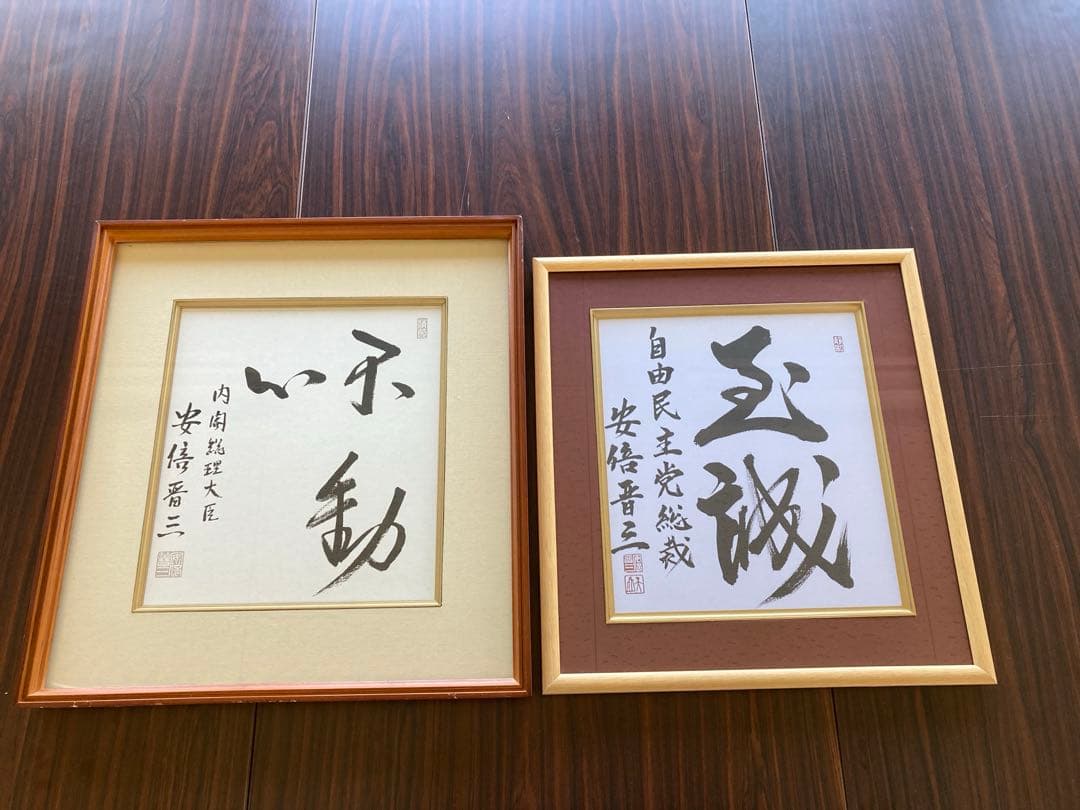 不動
心
内閣総理大臣
安倍晋三
至誠
自由民主党総裁
安倍晋三